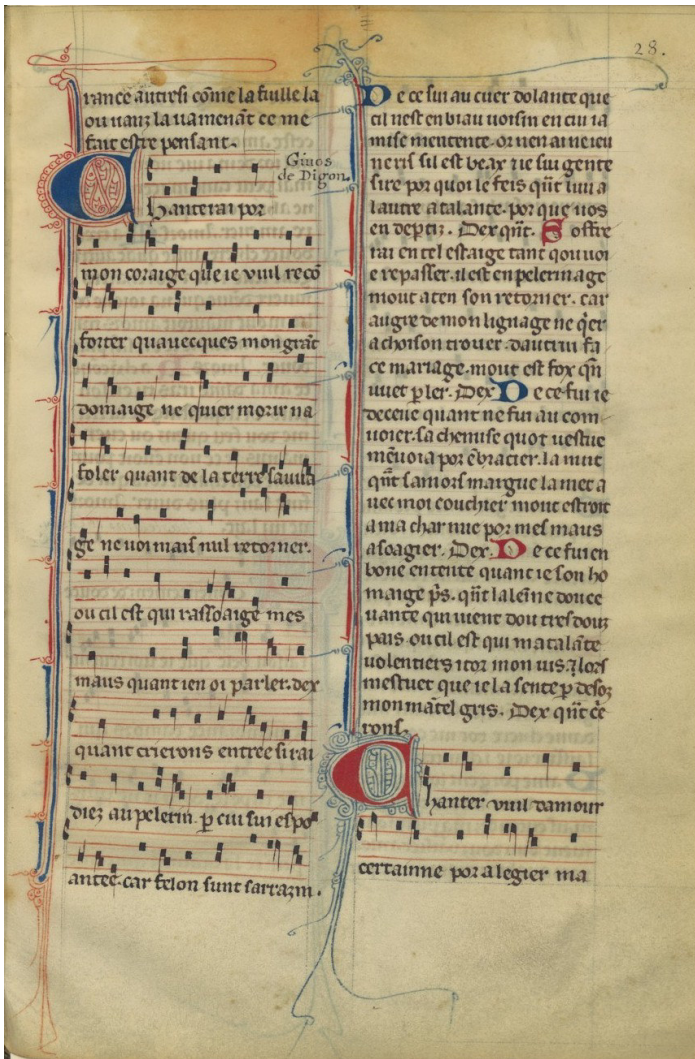 28.
rance autresi cōme la fiulle la
ou vauz la vamenāt ce me
fait estre pensant.
Giuos
de Digon.
Chanterai por
mon coraige que ie vuil recō
forter quauecques mon grāt
domaige ne quier morir na
foler quant de la terre sauua
ge ne voi mais nul retorner.
ou cil est qui rassoaige mes
maus quant ien oi parler. dex
quant crierons entree sirai
diez au pelerin. p cui sui espo
antee. car felon sunt sarrazin.
De ce sui au cuer dolante que
cil nest en biau uoisin en cui ia
mise mentente. or nen ai ne ieu
ne ris sil est beax 7 ie sui gente
sire por quoi le feis qn̄t lun a
lautre atalante. por que uos
en departiz. Dex qn̄t. Soffre
rai en tel estaige tant qou uoi
e repasser. il est en pelerinage
mout aten son retorner. car
augre de mon lignage ne qer
achoison trouer. dautrui fa
ce mariage. mout est fox qn̄
uuet p ler. Dex De ce fui ie
deceue quant ne fui au com
uoier. sa chemise quot uestue
mēuoia por ēbracier. la nuit
qn̄t samors margue la met a
uec moi couchier mout estroit
a ma char nue por mes maus
asoagier. Dex. De ce fui en
bone entente quant ie son ho
maige p̄s. qn̄t laleīne douce
uante qui uient dou tres douz
pais. ou cil est qui matalāte
uolentiers itor mon uis. 7 lors
mestuet que ie la sente p desoz
mon mātel gris. Dex qn̄t cē
rons.
Chanter vuil damour
certainne por alegier ma